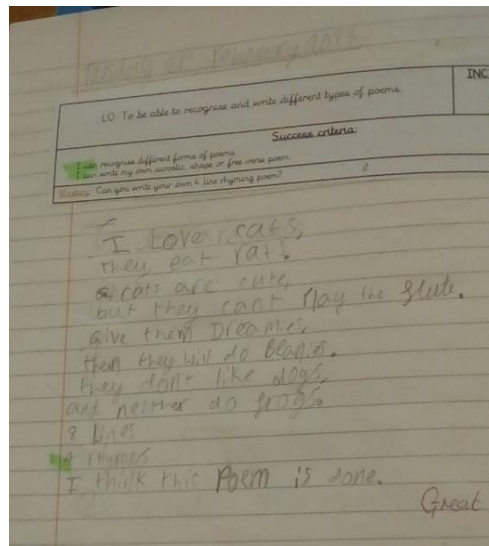 February
INC
LO To be able to recognise and write different types of poems
Success criteria:
I can recognise different forms of poems
I can write my own acrostic, shape or free verse poem.
Mastery Can you write your own 4 line rhyming poem?
I Love cats,
they eat rats.
cats are cute,
but they cant Play the flute.
Give them Dreamies,
them they will do Beanies.
they don't like dogs,
and neither do frogs.
8 lines
4 rhymes
I think this Poem is done.
Great